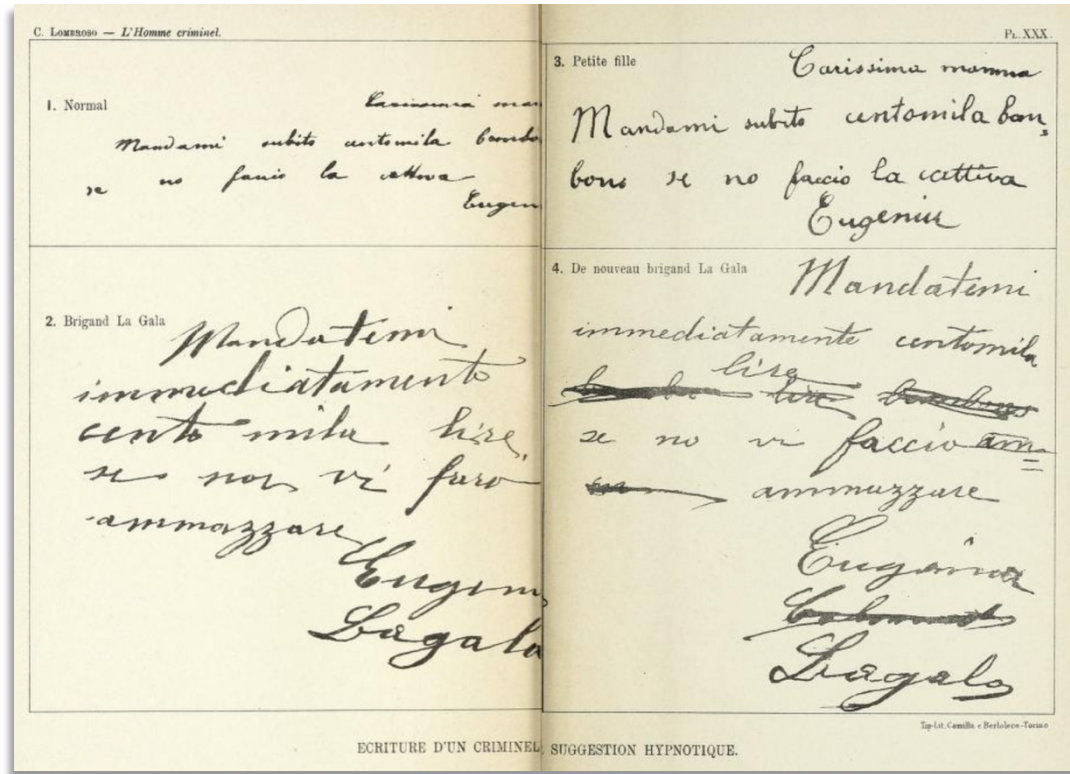 C. Lombroso — L'Homme criminel.
1. Normal
Carissima mam
Mandami subito centomila bombo
se no faccio la cattiva
Eugen
2. Brigand La Gala
Mandatemi
immediatamente
cento mila lire
se non vi faro
ammazzare
Eugen
Lagala
Pl. XXX.
3. Petite fille
Carissima mamma
Mandami subito centomila bon
bons se no faccio la cattiva
Eugenia
4. De nouveau brigand La Gala
Mandatemi
immediatamente centomila
lire
lire
se no vi faccio am
ammazzare
Eugenia
Lagala
Tip-Lit. Camilla e Bertolero-Torino
ECRITURE D'UN CRIMINEL SUGGESTION HYPNOTIQUE.